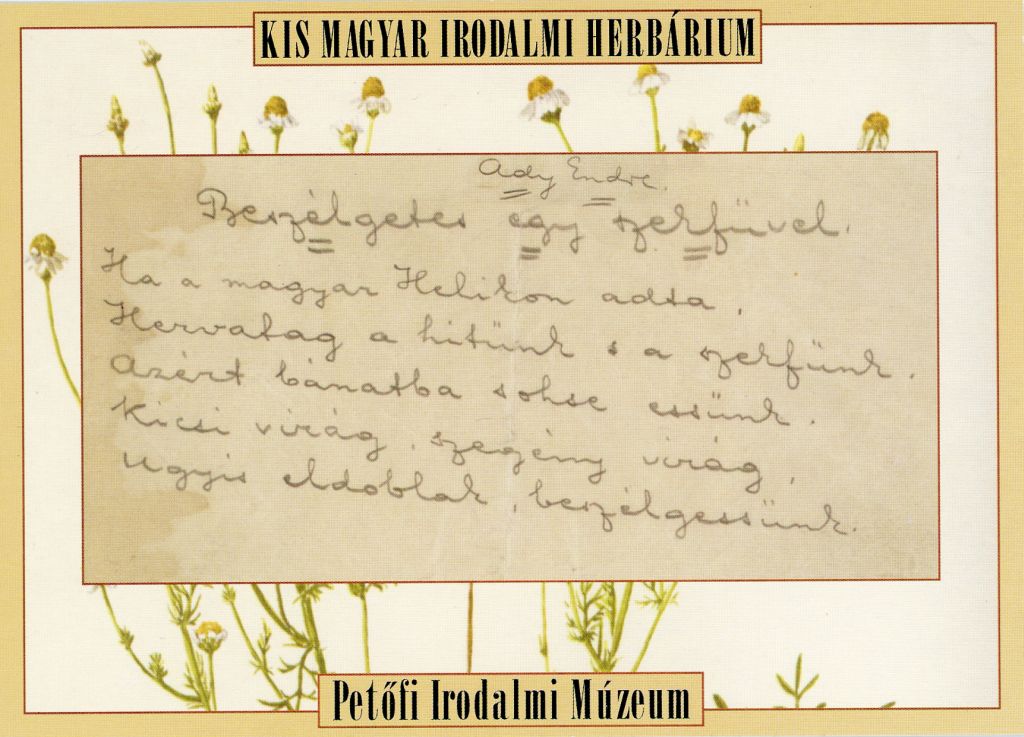 KIS MAGYAR IRODALMI HERBÁRIUM
Ady Endre.
Beszélgetés egy szekfüvel.
Ha a magyar Helikon adta,
Hervatag a hitünk s a szekfünk.
Azért bánatba sohse essünk.
Kicsi virág, szegény virág,
Ugyis eldoblak, beszélgessünk.
Petőfi Irodalmi Múzeum